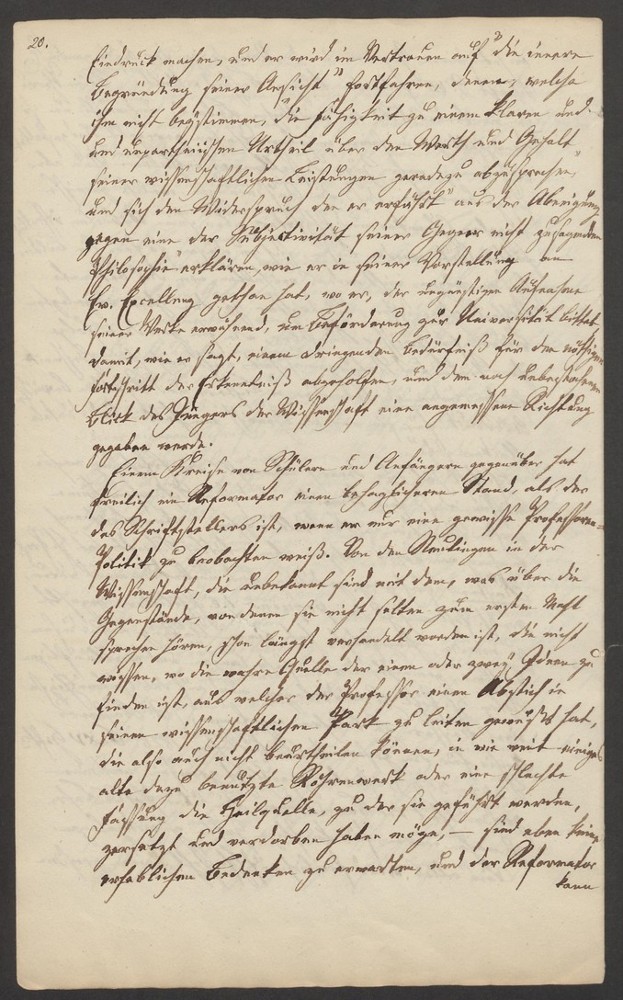 20.
Eindruck machen, und er wird im Vertrauen auf "die innere
Begründung seiner Ansicht" fortfahren, denen, welche
ihm nicht beystimmen, "die Fähigkeit zu einem klaren und
und unpartheiischen Urtheil über den Werth und Gehalt
seiner wissenschaftlichen Leistungen geradezu abzusprechen,"
und sich den Widerspruch den er erfährt "aus der Abneigung
gegen eine der Subjectivität seiner Gegner nicht zusagenden
Philosophie" erklären, wie er in seiner Vorstellung an
Ew. Excellenz gethan hat, wo er, der ungünstigen Aufnahme
seiner Werke erwähnend, um Beförderung zur Universität bittet,
damit, wie er sagt, einem dringenden Bedürfniß für den nöthigen
Fortschritt der Erkenntniß abgeholfen, und dem noch unbestochenen
Blick des Jüngers der Wissenschaft eine angemessene Richtung
gegeben werde.
Einem Kreise von Schülern und Anfängern gegenüber hat
freilich ein Reformator einen behaglicheren Stand, als der
des Schriftstellers ist, wenn er nur eine gewisse Professoren-
Politik zu beobachten weiß. Von den Neulingen in der
Wissenschaft, die unbekannt sind mit dem, was über die
Gegenstände, von denen sie nicht selten zum ersten Mahl
sprechen hören, schon längst verhandelt worden ist, die nicht
wissen, wo die wahre Quelle der einen oder zwey Ideen zu
finden ist, aus welcher der Professor einen Abstich in
seinen wissenschaftlichen Park zu leiten gewußt hat,
die also auch nicht beurtheilen können, in wie weit einiges
alte dazu benutzte Röhrenwerk oder eine schlechte
Fassung die Heilquelle, zu der sie geführt werden,
zersetzt und verdorben haben möge, — sind eben keine
erheblichen Bedenken zu erwarten, und der Reformator
kann